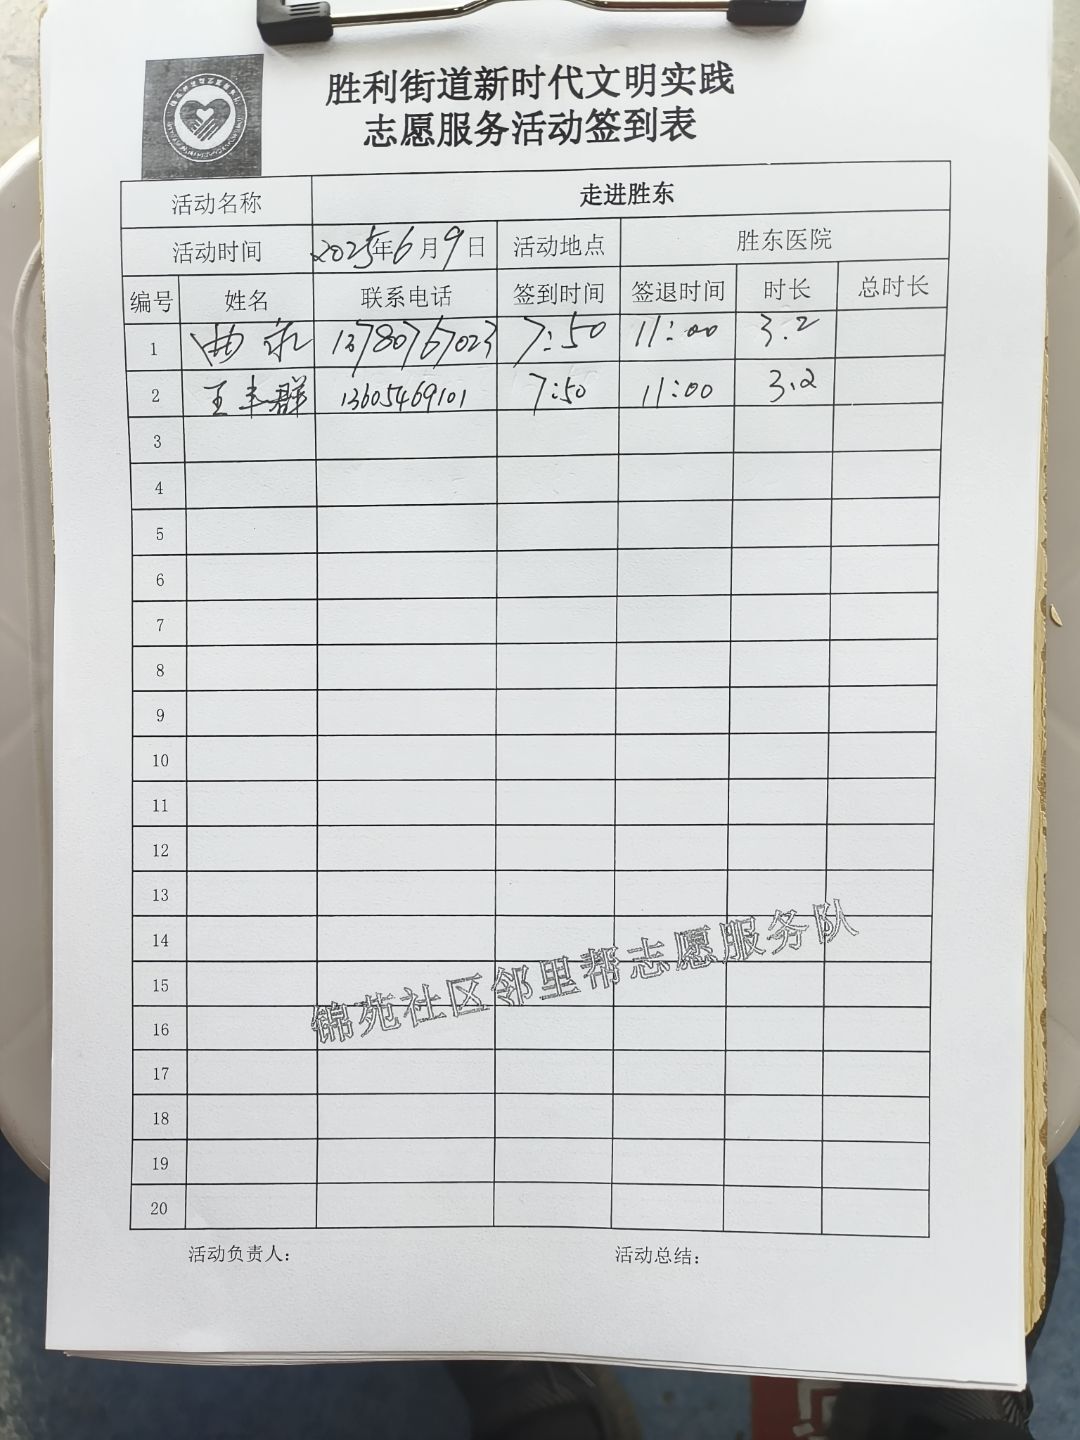 胜利街道新时代文明实践
志愿服务活动签到表
活动名称 走进胜东
活动时间 2025年6月9日 活动地点 胜东医院
编号 姓名 联系电话 签到时间 签退时间 时长 总时长
1 曲 13780767023 7:50 11:00 3.2
2 王丰群 13605469101 7:50 11:00 3.2
3
4
5
6
7
8
9
10
11
12
13
14
15
16
17
18
19
20
锦苑社区邻里帮志愿服务队
活动负责人: 活动总结: